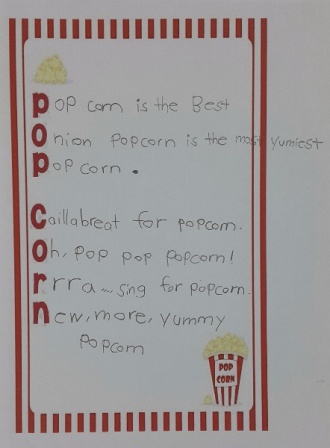 Pop corn is the Best
Onion Popcorn is the most yumiest
Popcorn.
Caillabreat for popcorn.
Oh, Pop pop popcorn!
rrra~ sing for popcorn.
new, more, yummy
Popcorn
POP
CORN